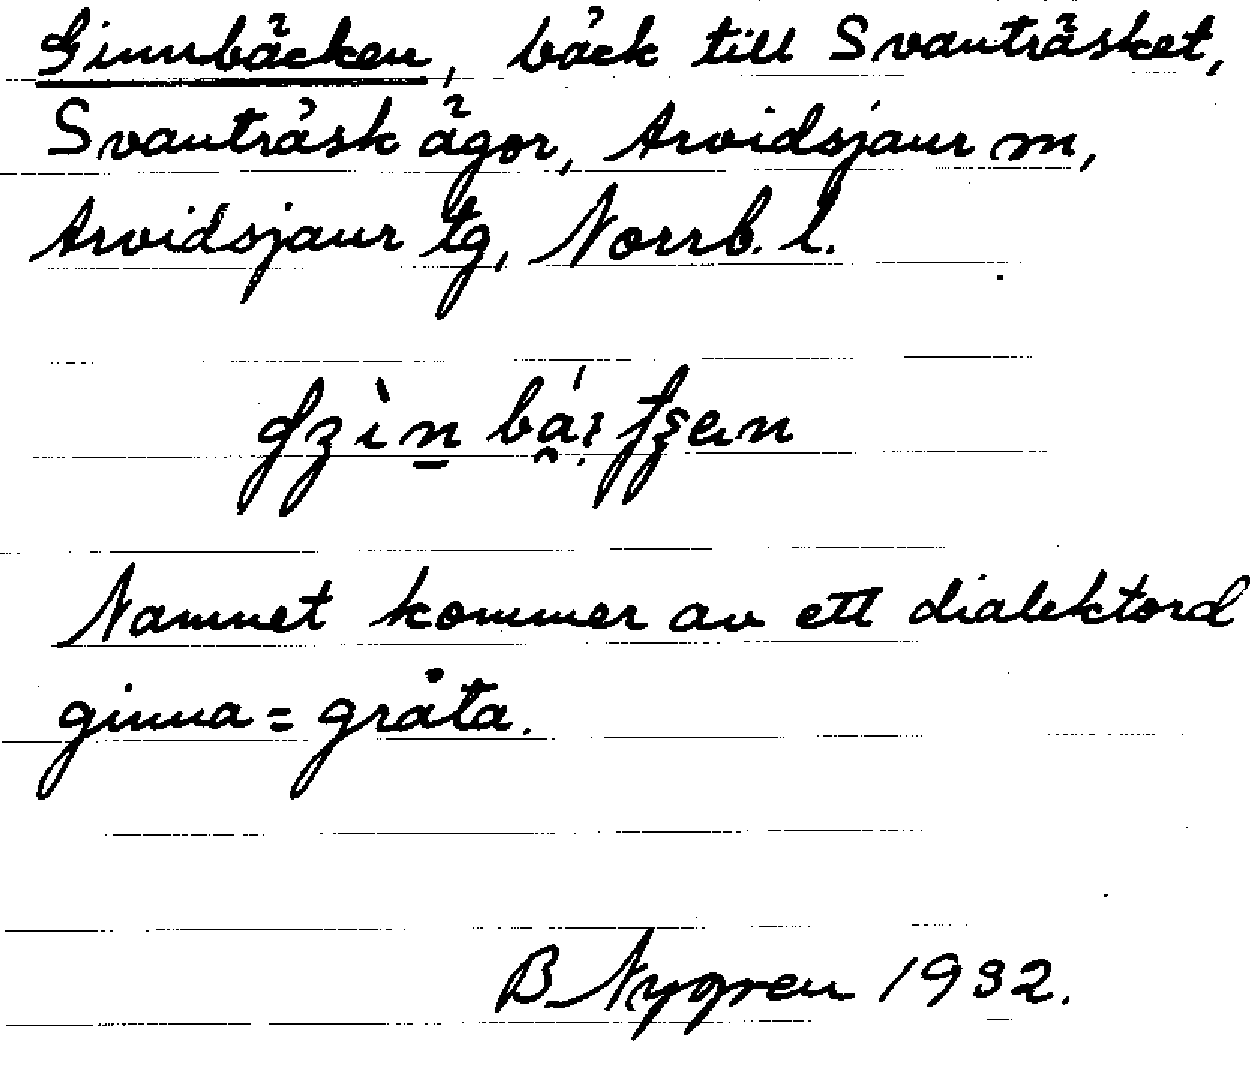 Ginnbäcken, bäck till Svanträsket,
Svanträsk ägor, Arvidsjaur m,
Arvidsjaur tg, Norrb. l.
Namnet kommer av ett dialektord
ginna = gråta.
B Nygren 1932.